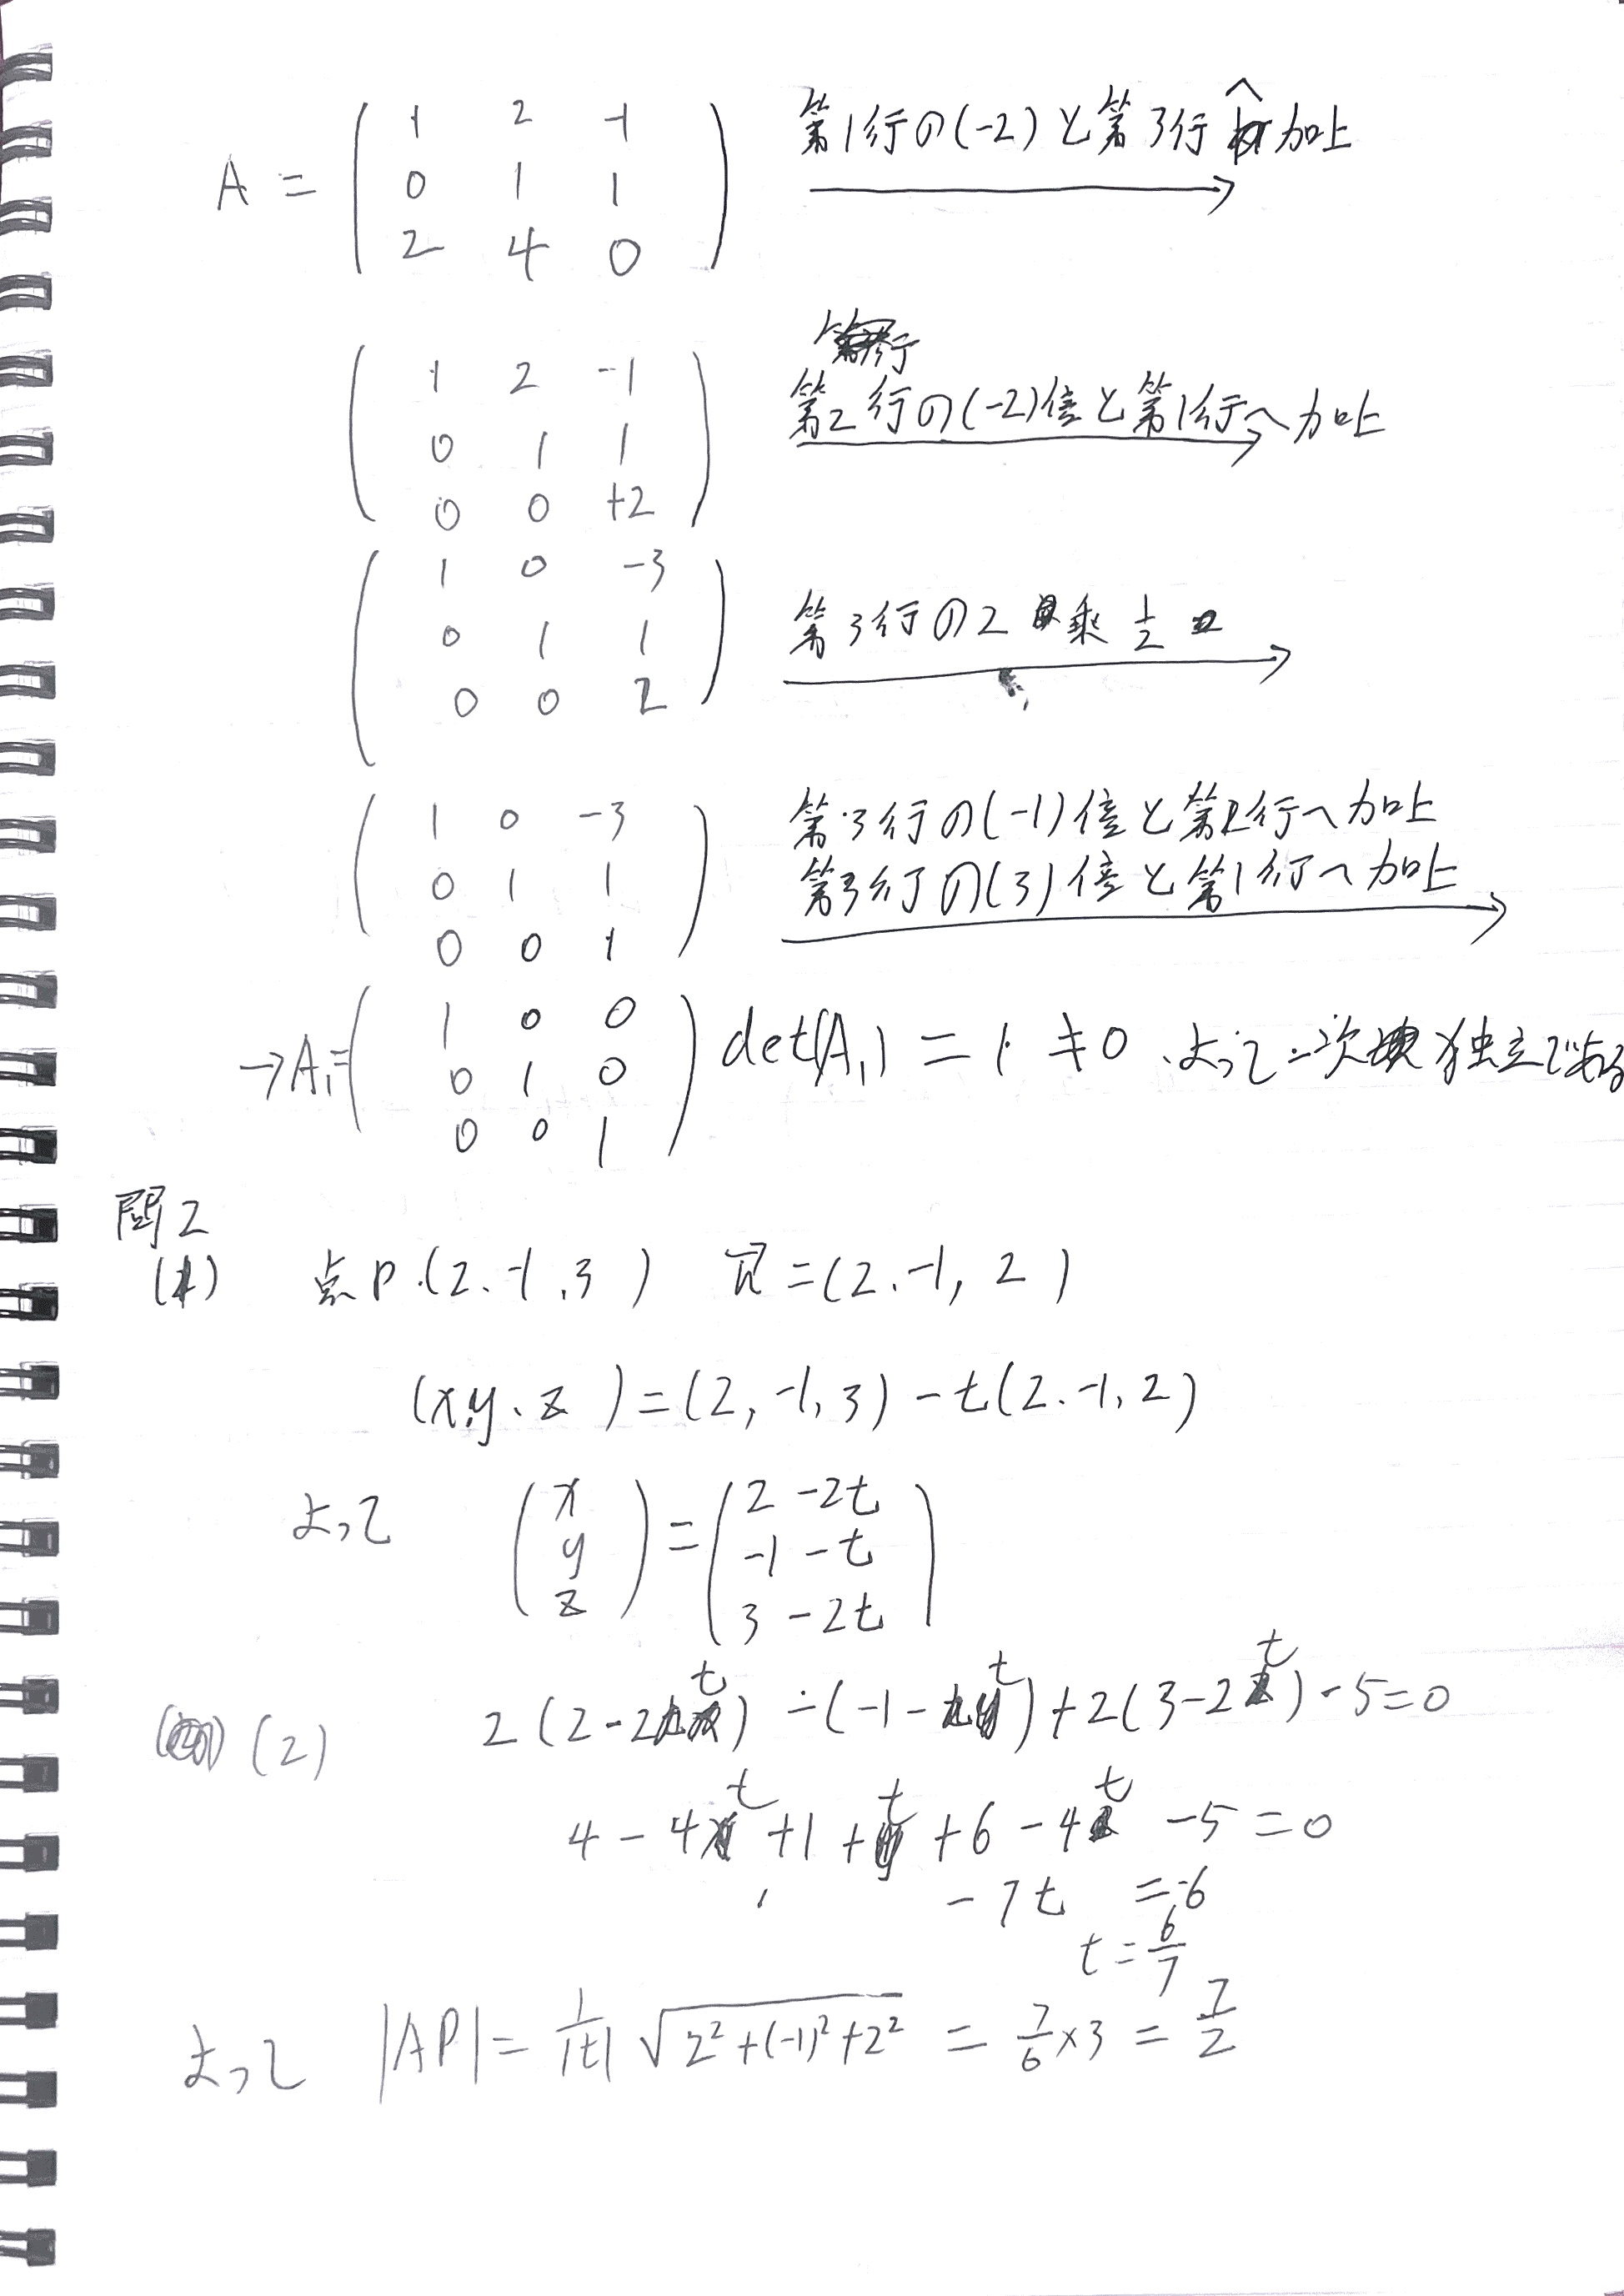 A = ( 1 2 -1
0 1 1
2 4 0 )
第1行の(-2)と第3行へ加上
( 1 2 -1
0 1 1
0 0 +2 )
第2行の(-2)倍と第1行へ加上
( 1 0 -3
0 1 1
0 0 2 )
第3行の2乗 1/2
( 1 0 -3
0 1 1
0 0 1 )
第3行の(-1)倍と第2行へ加上
第3行の(3)倍と第1行へ加上
→A₁= ( 1 0 0
0 1 0
0 0 1 )
det(A₁) = 1 ≠ 0 よって一次独立である
問2
(1) 点P.(2.-1.3) n⃗=(2.-1, 2)
(x,y、z)=(2,-1,3)-t(2.-1,2)
よって ( x
y
z ) = ( 2-2t
-1-t
3-2t )
(2) 2(2-2t)-(-1-t)+2(3-2t)-5=0
4-4t+1+t+6-4t-5=0
-7t=-6
t=6/7
よって |AP|=1/|t| √(2²+(-1)²+2²) = 7/6×3 = 7/2